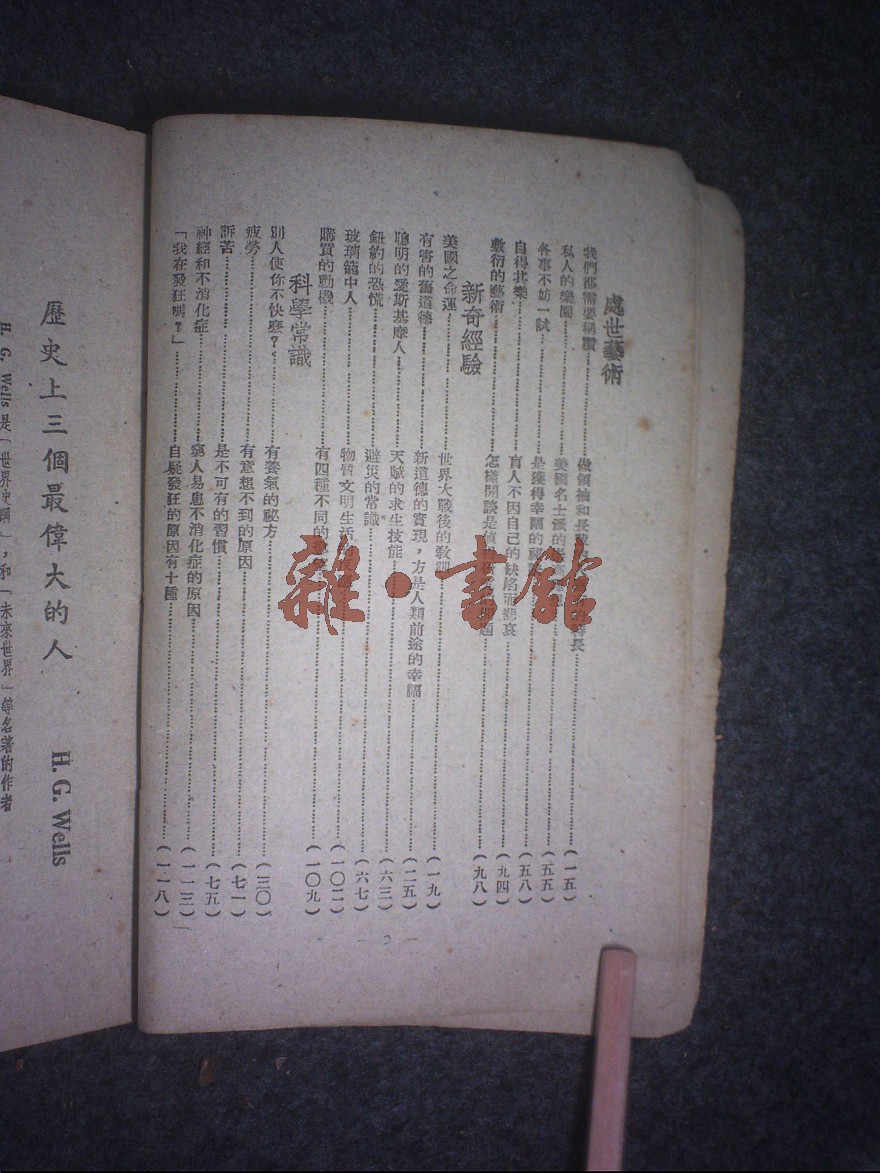 處世藝術
我們都需要稱讚……做領袖和長……長……(一五)
私人的樂園……美國名士派的……(五五)
各事不妨一試……是獲得幸福的……(五八)
自得其樂……盲人不因自己的缺陷而悲哀……(九四)
敷衍的藝術……怎樣開談是……題……(九八)
新奇經驗
美國之命運……世界大戰後的教訓……(一九)
有害的舊道德……新道德的實現，方是人類前途的幸福……(二五)
聰明的愛斯基摩人……天賦的求生技能……(六三)
鈕約的恐慌……避災的常識……(六七)
玻璃籠中人……物質文明生活……(一〇二)
購買的動機……有四種不同的……(一〇九)
科學常識
別人使你不快麽？……有養氣的秘方……(三〇)
疲勞……有意想不到的原因……(七一)
訴苦……是不可有的習慣……(七五)
神經和不消化症……窮人易患不消化症的原因……(一一三)
「我在發狂嗎？」……自疑發狂的原因有十種……(一一八)
歷史上三個最偉大的人 H. G. Wells
H. G. Wells 是「世界史綱」，和「未來世界」等名著的作者
雜·書館